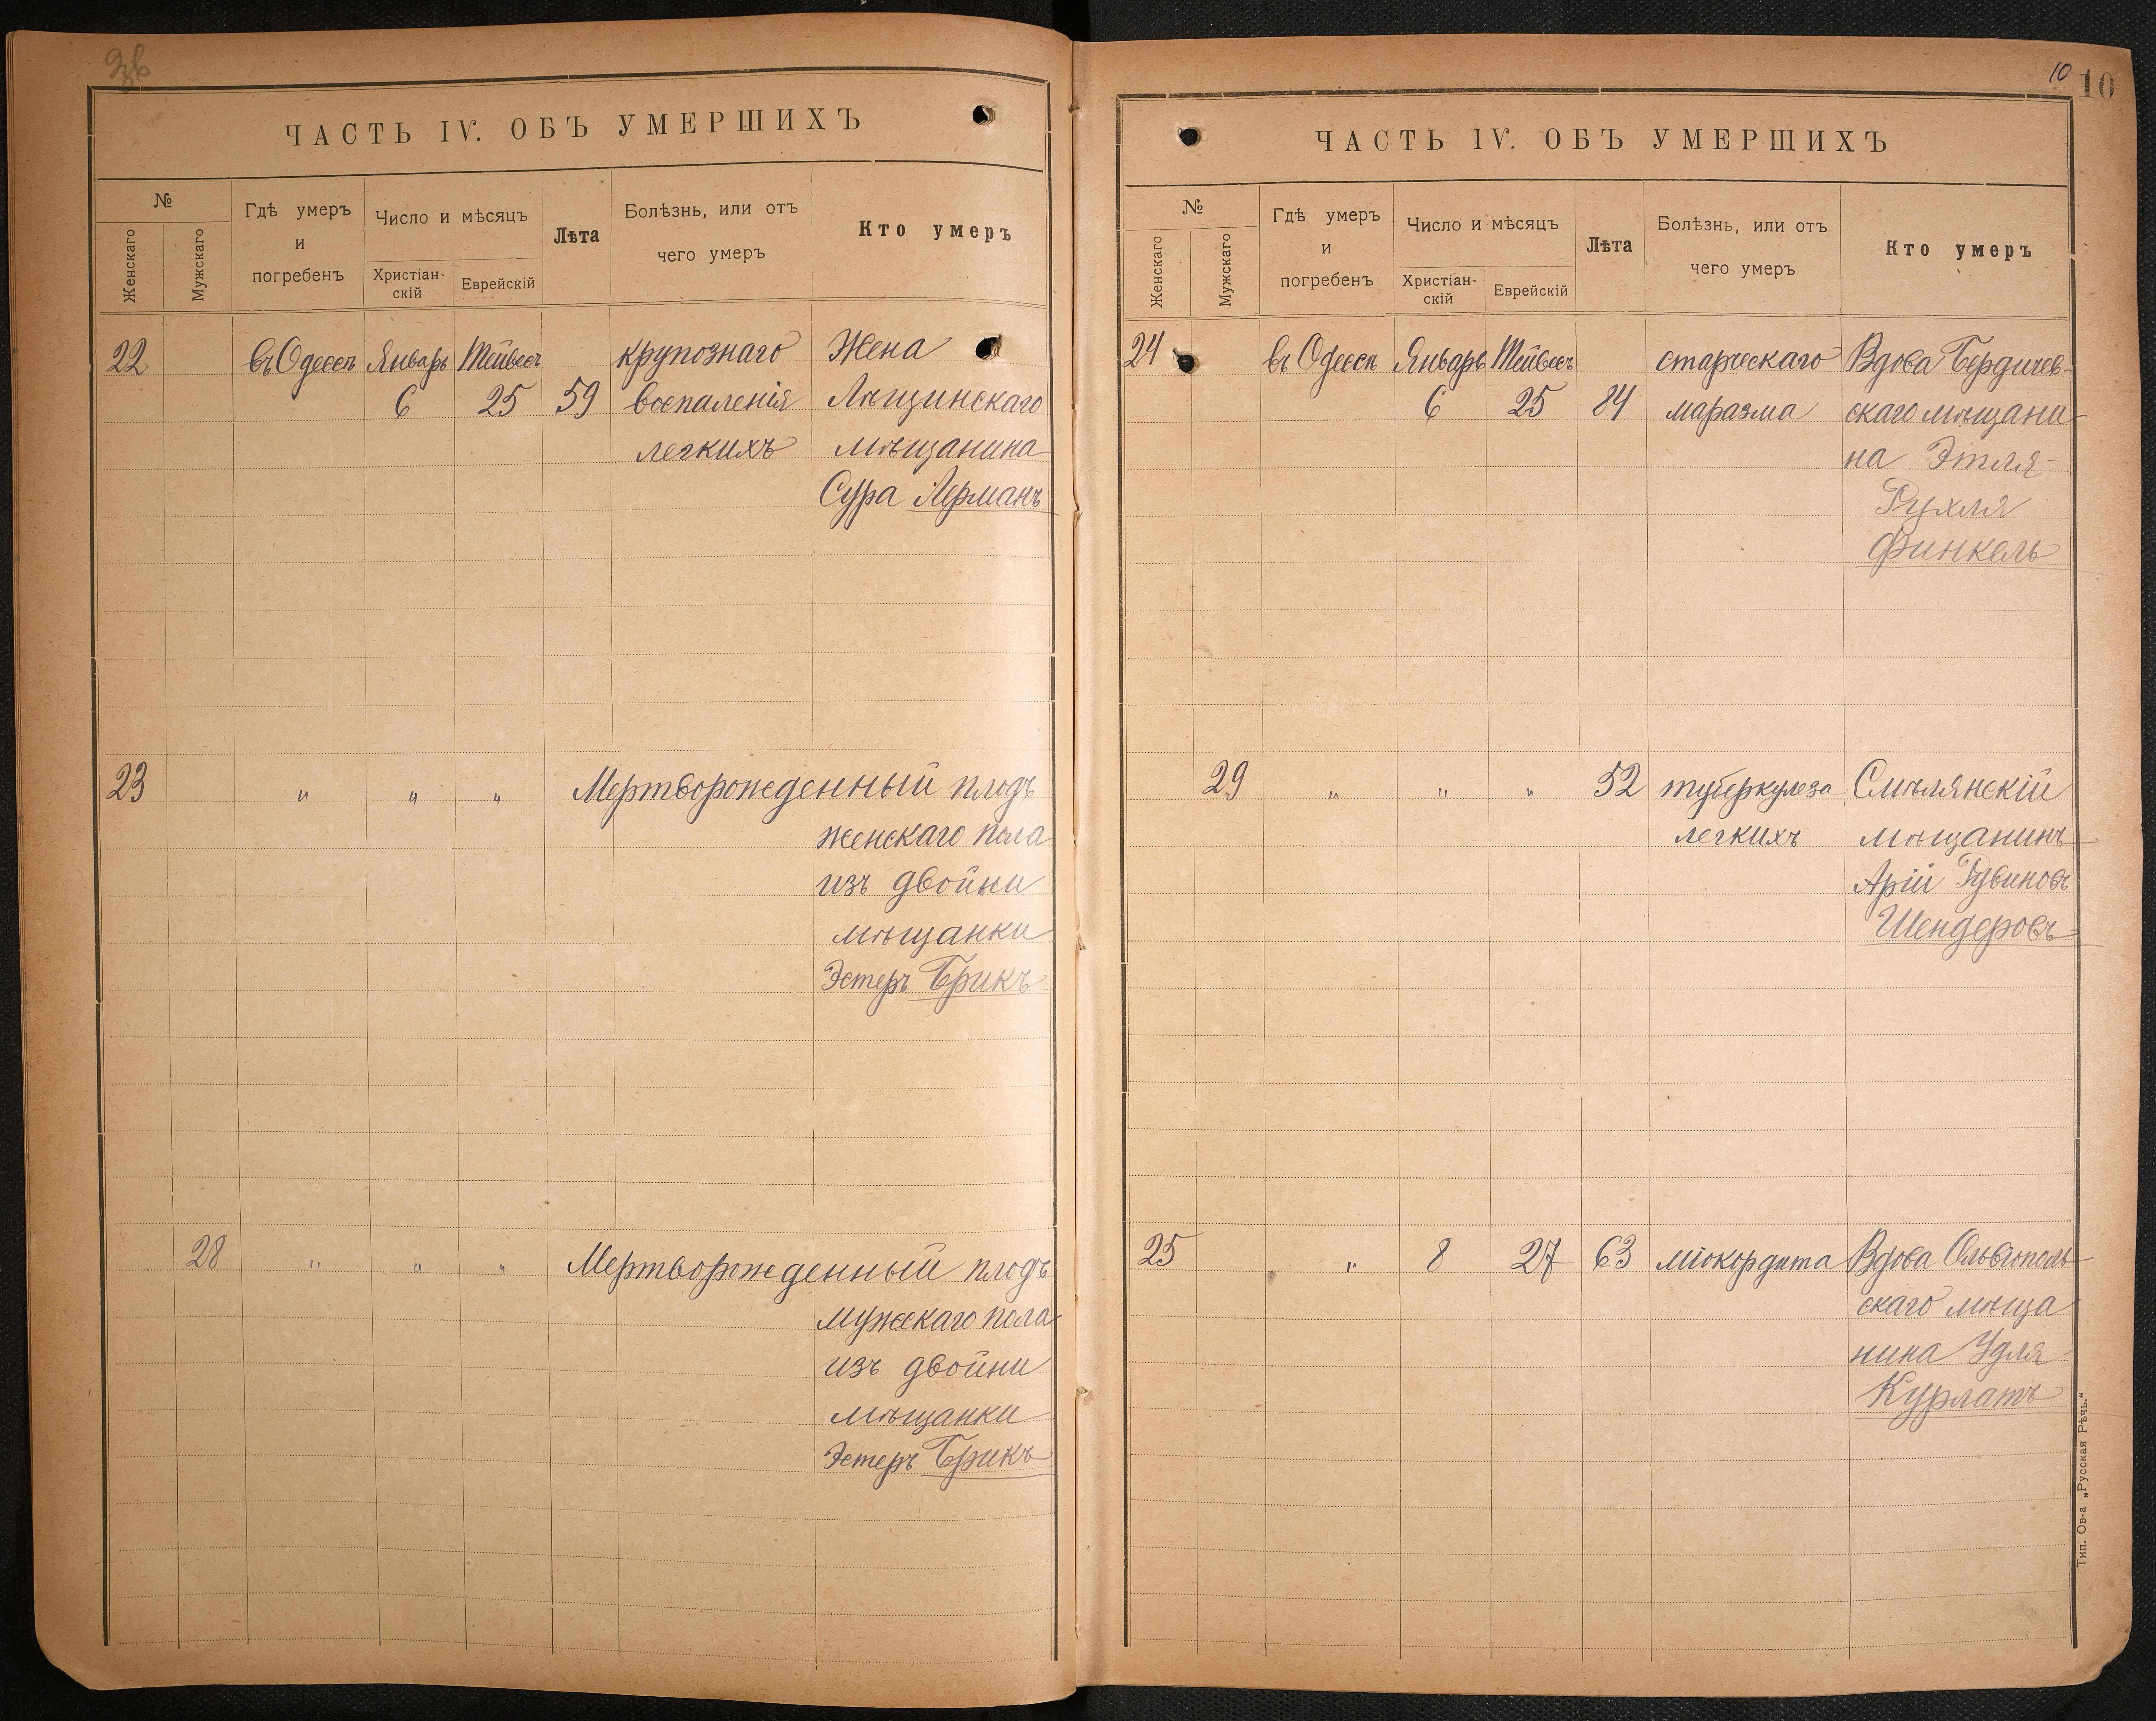 ЧАСТЬ IV. ОБЪ УМЕРШИХЪ
№
Женскаго
Мужскаго
Гдѣ умеръ
и
погребенъ
Число и мѣсяцъ
Христіан-
скій
Еврейскій
Лѣта
Болѣзнь, или отъ
чего умеръ
Кто умеръ
22 въ Одессѣ Январь Тейвесъ крупознаго Жена
6 25 59 воспаленія Лѣщинскаго
легкихъ мѣщанина
Сура Лерманъ
23 " " " Мертворожденный плодъ
женскаго пола
изъ двойни
мѣщанки
Эстеръ Брикъ
28 " " " Мертворожденный плодъ
мужскаго пола
изъ двойни
мѣщанки
Эстеръ Брикъ
10 10
ЧАСТЬ IV. ОБЪ УМЕРШИХЪ
№
Женскаго
Мужскаго
Гдѣ умеръ
и
погребенъ
Число и мѣсяцъ
Христіан-
скій
Еврейскій
Лѣта
Болѣзнь, или отъ
чего умеръ
Кто умеръ
24 въ Одессѣ Январь Тейвесъ старческаго Вдова Бердичев-
6 25 84 маразма скаго мѣщани-
на Этля-
Рухля
Финкель
29 " " " 52 туберкулеза Смѣлянскій
легкихъ мѣщанинъ
Арій Рувиновъ
Шендеровъ
25 " 8 27 63 міокордита Вдова Ольвіополь-
скаго мѣща
нина Удля
Курлатъ
Тип. Ов-а „Русская Рѣчь.“